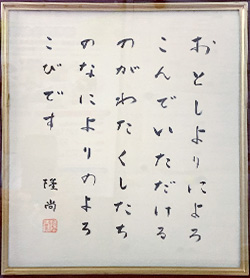 おとしよりによろ
こんでいただける
のがわたくしたち
のなによりのよろ
こびです
隆尚